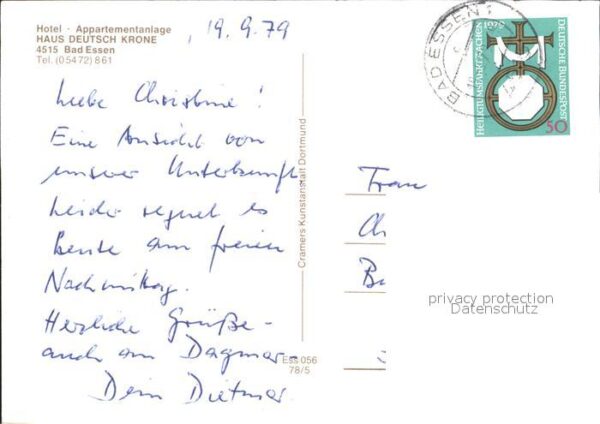 Hotel · Appartementanlage
HAUS DEUTSCH KRONE
4515 Bad Essen
Tel. (05472) 861
, 19.9.79
Liebe Christine!
Eine Ansicht von
unserer Unterkunft
Leider regnet es
heute am freien
Nachmittag.
Herzliche Grüße -
auch an Dagmar -
Dein Dietmar
Cramers Kunstanstalt Dortmund
Ess 056
78/5
BAD ESSEN 1
HEILIGTUMSFAHRT AACHEN 1979
DEUTSCHE BUNDESPOST
50
Frau
Ch
B
privacy protection
Datenschutz